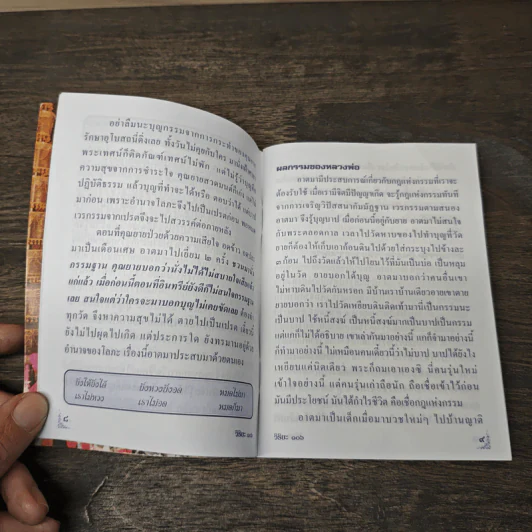 อย่าลืมนะบุญกรรมจากการกระทำของ
รักษาอุโบสถนี่ดิ่งเลย ทั้งวันไม่คุยกับใคร มานั่งสี่
พระเทศน์ก็ติดกัณฑ์เทศน์ไม่พัก แต่ไม่รู้ว่าบุญ
ความสุขจากการชำระใจ คุณยายสวดมนต์ก็เก่ง
ปฏิบัติธรรม แล้วบุญที่ทำจะได้หรือ ตอบว่าได้
มาก่อน เพราะอำนาจโลภะจึงไปเป็นเปรตก่อน
เวรกรรมจากเปรตจึงจะไปสวรรค์ต่อภายหลัง
ตอนที่คุณยายป่วยด้วยความเสียใจ อดข้าว
มาเป็นเดือนเศษ อาตมาไปเยี่ยม ๒ ครั้ง ชวน
กรรมฐาน คุณยายบอกว่านั่งไม่ได้ไม่สบายใจเสีย
แก่แล้ว เมื่อก่อนนี้ตอนที่อินทรีย์ยังดีก็ไม่สนใจกรรมฐาน
เลย สนใจแต่ว่าใครจะมาบอกบุญไม่เคยขัดเลย
ทุกวัด จึงหาความสุขไม่ได้ ตายไปเป็นเปรต เดี๋ยวนี้
ยังไม่ไปผุดไปเกิด แต่ประการใด ยังทรมานอยู่ด้วย
อำนาจของโลภะ เรื่องนี้อาตมาประสบมาด้วยตนเอง
ยิ่งให้ยิ่งได้ ยิ่งหวงยิ่งอด หมดไม่มา
เราไม่หวง เราไม่อด หมดก็มา
๘
วิริยะ ๑๐๖
ผลกรรมของหลวงพ่อ
อาตมามีประสบการณ์เกี่ยวกับกฎแห่งกรรมที่เราจะ
ต้องรับใช้ เมื่อเรามีจิตมีปัญญาเกิด จะรู้กฎแห่งกรรมทันที
จากการเจริญวิปัสสนากัมมัฏฐาน เวรกรรมตามสนอง
อาตมา จึงรู้บุญบาป เมื่อก่อนนี้อยู่กับยาย อาตมาไม่สนใจ
กับพระตลอดกาล เวลาไปวัดหาบของไปทำบุญที่วัด
ยายก็ต้องให้เก็บเอาก้อนดินไปด้วยใส่กระบุงไปข้างละ
๓ ก้อน ไปถึงวัดแล้วให้ไปโยนไว้ที่มันเป็นบ่อ เป็นหลุม
อยู่ในวัด ยายบอกได้บุญ อาตมาบอกว่าคนอื่นเขา
ไม่หาบดินไปวัดกันหรอก มีบ้านเราบ้านเดียวอายเขาตาย
ยายบอกว่า เราไปวัดเหยียบดินติดเท้ามานี่เป็นกรรมนะ
เป็นบาป ใช้หนี้สงฆ์ เป็นหนี้สงฆ์มากเป็นบาปเป็นกรรม
แต่แกก็ไม่ได้อธิบาย เขาเล่ากันมาอย่างนี้ แกก็จำอย่างนี้
ก็ทำมาอย่างนี้ ไม่เหมือนคนเดี๋ยวนี้ว่าไม่บาป บาปได้ยังไง
เหยียบแค่นิดเดียว พระก็ถมเอาเองซิ นี่คนรุ่นใหม่
เข้าใจอย่างนี้ แต่คนรุ่นเก่าถือนัก ถือเชื่อเข้าไว้ก่อน
มันมีประโยชน์ มันได้กำไรชีวิต คือเชื่อกฎแห่งกรรม
อาตมาเป็นเด็กเมื่อมาบวชใหม่ๆ ไปบ้านญาติ
วิริยะ ๑๐๖
๙